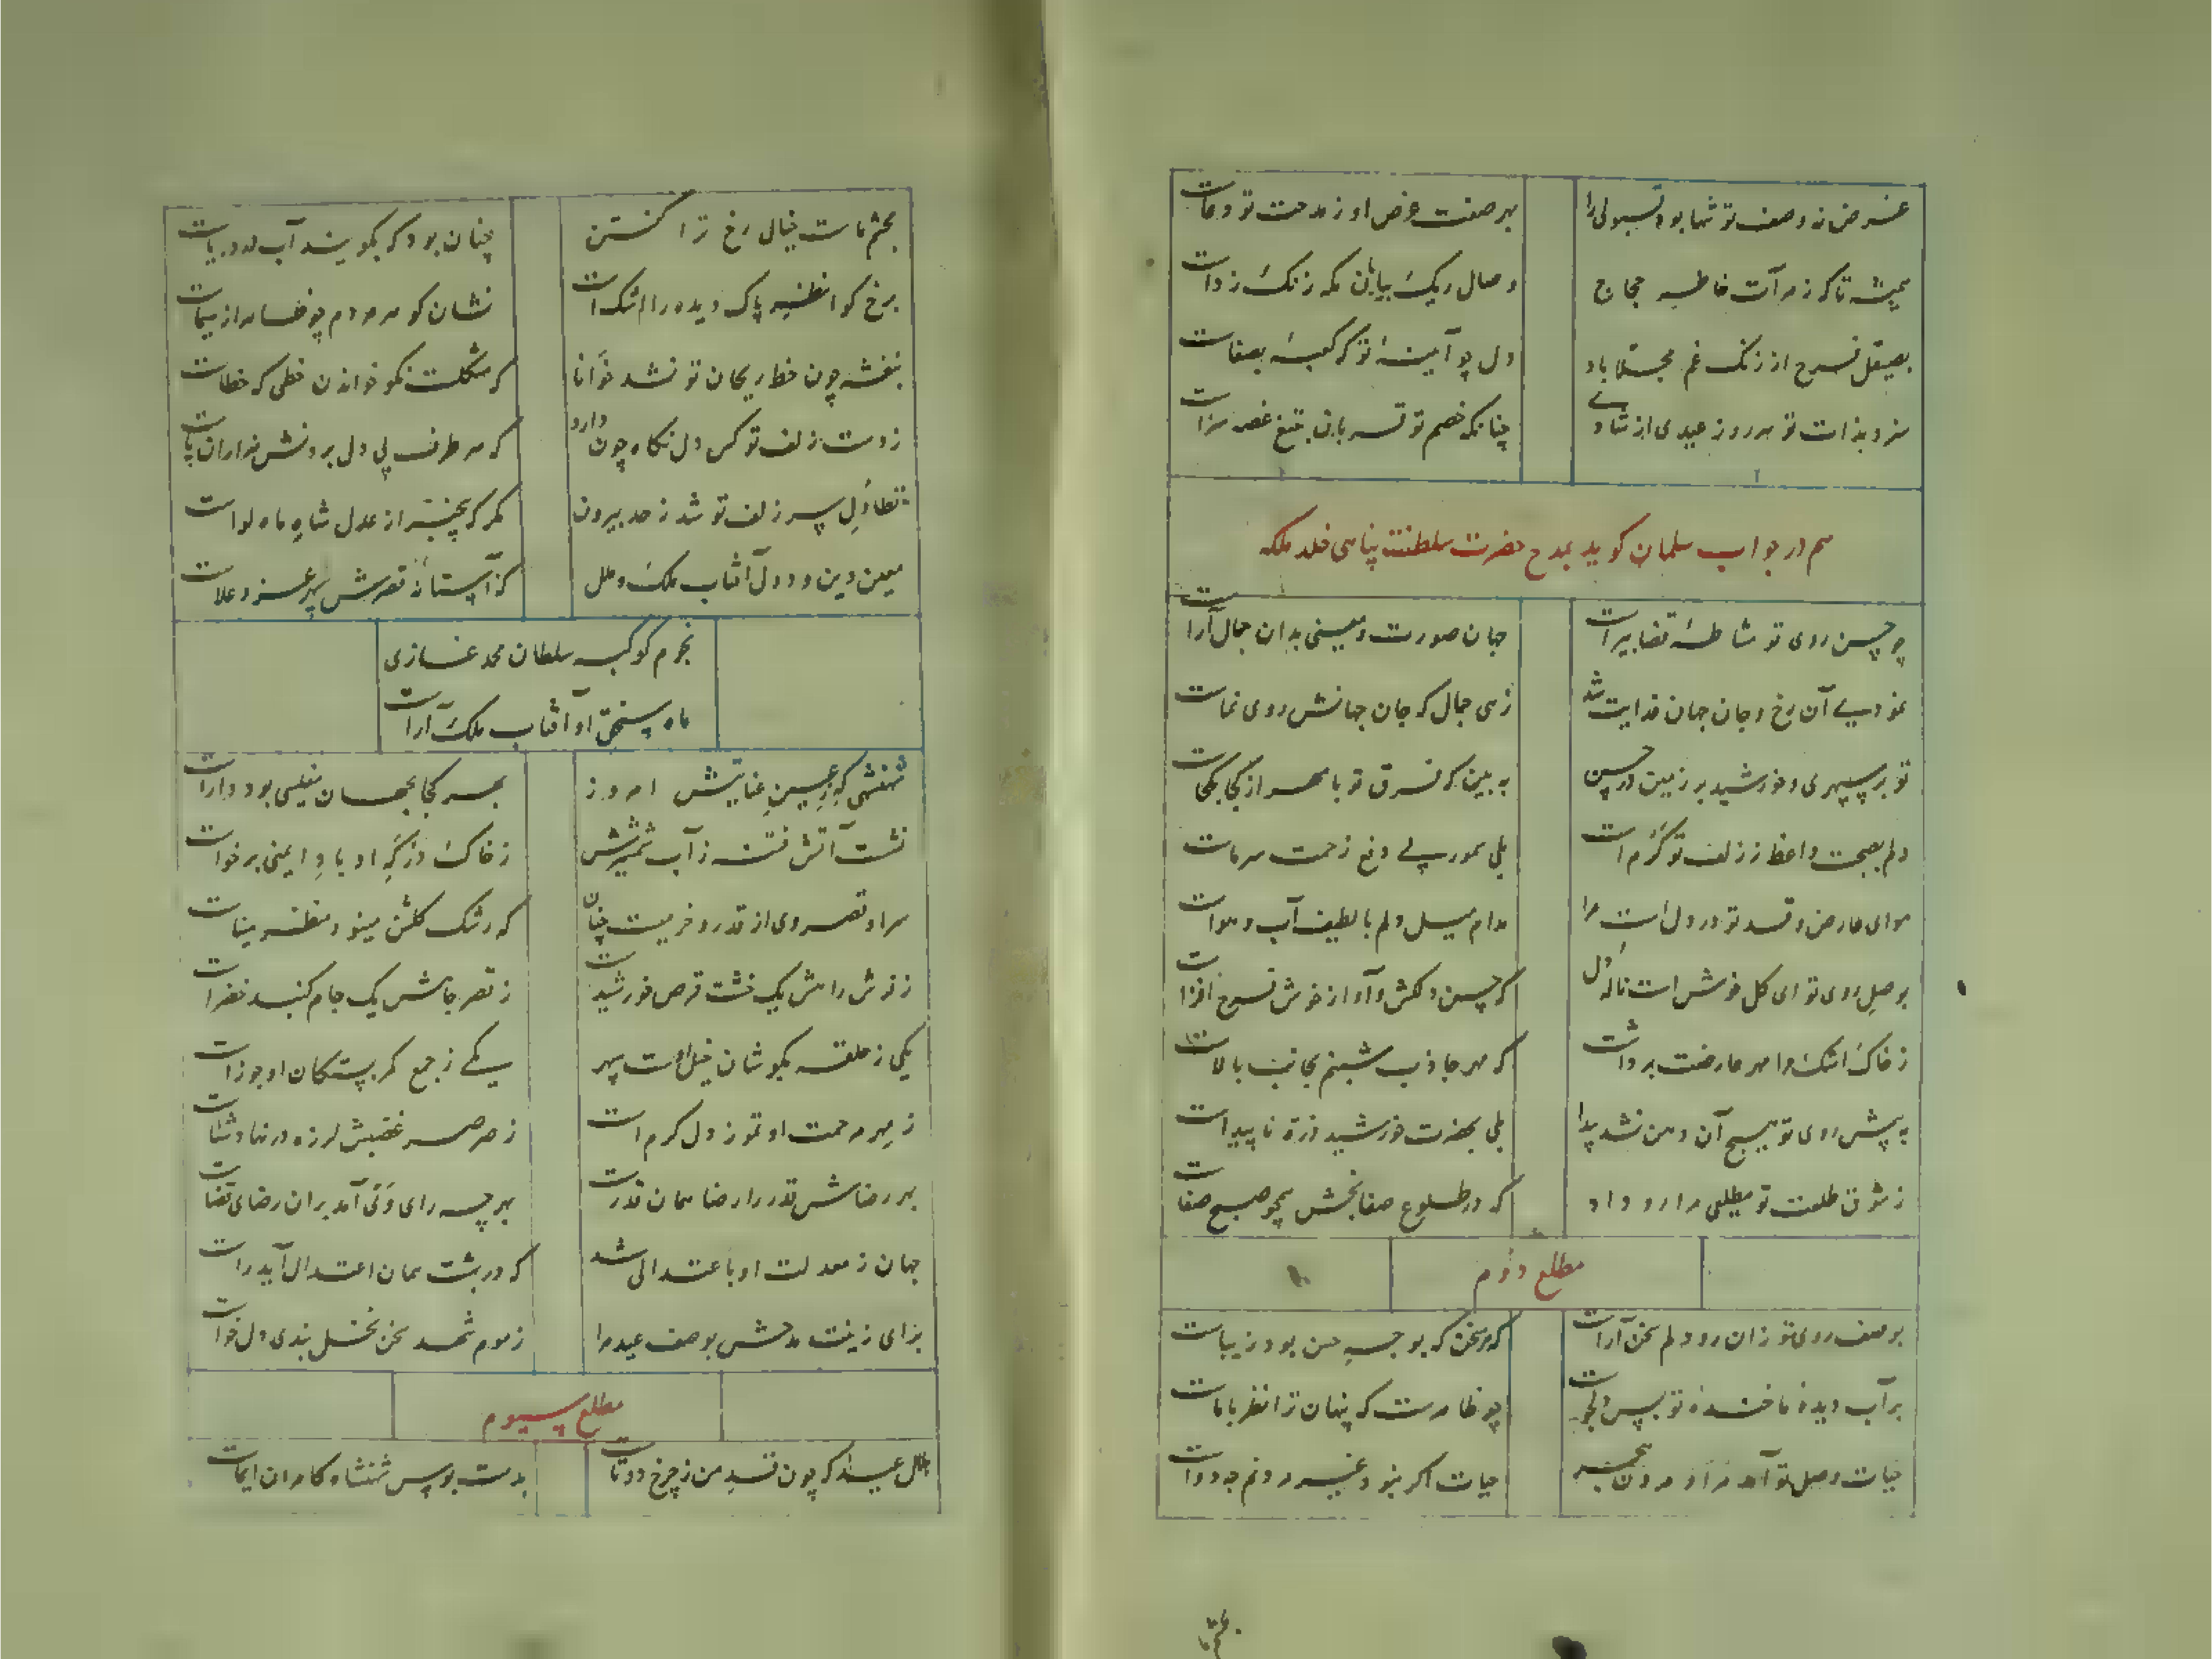 غرض نه وصف تو تنها بود قبولی را
بهر صفت غرض او ز مدحت تو دعاست
همیشه تا که ز مرآت خاطر حجاج
وصال ریک بیابان مکه زنک زداست
بصیقل فرح از زنک غم مجلا باد
دل چو آینهٔ تو که کعبه بصفاست
سزد بذات تو هر روز عیدی از شادی
چنانکه خصم تو قربان بتیغ غصه سزاست
هم در جواب سلمان کوید بمدح حضرت سلطنت پناهی خلد ملکه
چو حسن روی تو مشاطهٔ قضا پیراست
جهان صورت و معنی بدان جمال آراست
نمودیی آن رخ و جان جهان فدایت شد
زهی جمال که جان جهانش روی نماست
تو بر سپهری و خورشید بر زمین در حسن
به بین که فرق تو با مهر از کجا بکجاست
دلم بصحبت واعظ ز زلف تو کرم است
بلی سمور پی دفع زحمت سرماست
هوای عارض و قد تو در دل است مرا
مدام میل دلم با لطیف آب و هواست
بوصل روی تو ای کل خوش است نالهٔ دل
که حسن دلکش و آواز خوش فرح افزاست
ز خاک اشک مرا مهر عارضت برداشت
که مهر جاذب شبنم بجانب بالاست
به پیش روی تو هیچ آن دهن نشد پیدا
بلی بحضرت خورشید ذره ناپیداست
ز شوق طلعت تو مطلعی مرا رو داد
که در طلوع صفابخش همچو صبح صفاست
مطلع دوم
بوصف روی تو زان رو دلم سخن آراست
که هر سخن که بوجه حسن بود زیباست
بر آب دیدهٔ ما خندهٔ تو بس دلجوست
چو ظاهرست که پنهان ترا نظر با ماست
حیات وصل تو آمد مراد مردن هجر
حیات اکر نبود غیر مردنم چه دواست
بچشم ماست خیال رخ ترا کشتن
چنان بود که بکویند آب در دریاست
برخ کو انظر پاک دیده را اشک است
نشان کوهر مردم چو ظاهر از سیماست
بنفشه چون خط ریحان تو نشد خوانا
که مشکلست نکو خواندن خطی که خطاست
ز دست زلف تو کس دل نکاه چون دارد
که هر طرف پی دل بردنش هزاران پاست
تطاول سر زلف تو شد ز حد بیرون
مکر که بیخبر از عدل شاه ماه لواست
معین دین و دول آفتاب ملک و ملل
که آستانهٔ قصرش سپهر عز و علاست
نجوم کوکبه سلطان محمد غازی
ماه سنجق او آفتاب ملک آراست
شهنشهی که ز عین عنایتش امروز
بهر کجا بجهان مفلسی بود داراست
نشست آتش فتنه ز آب شمشیرش
ز خاک درکه او باد ایمنی برخواست
سرا و قصر وی از قدر و خرمیست چنان
که رشک کلشن مینو و منظر میناست
ز فرش راهش یک خشت قرص خورشیدست
ز قصر جاهش یک جام کنبد خضراست
یکی ز حلقه بکوشان خیل اوست سپهر
یکی ز جمع کمر بستکان او جوزاست
ز مهر مرحمت او تموز دل کرم است
ز صرصر غضبش لرزه در نهاد شتاست
بهر رضاش قدر را رضا همان قدرست
بهر چه رای وی آمد بران رضای قضاست
جهان ز معدلت او باعتدالی شد
که در بهشت همان اعتدال آید راست
برای زینت مدحش بوصف عید مرا
ز موم شهد سخن نخل بندی دل خواست
مطلع سیوم
هلال عید که چون قد من ز چرخ دوتاست
بدست بوس شهنشاه کامران ایماست